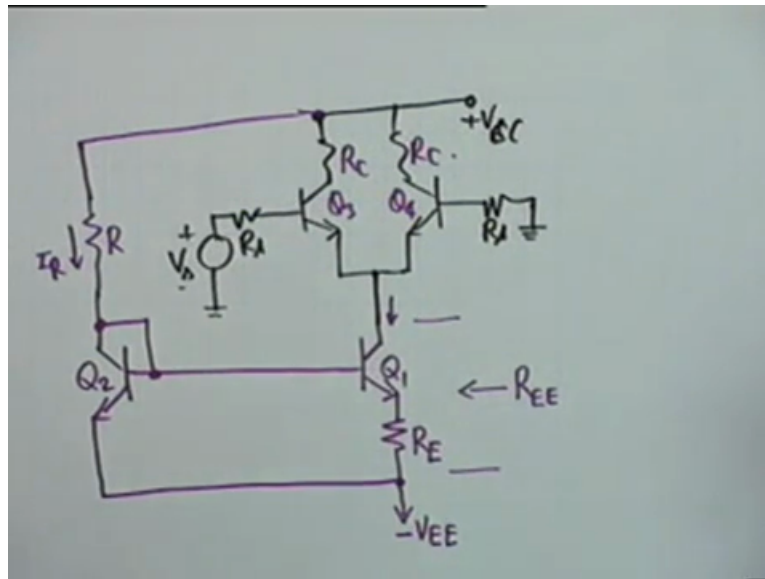 +VCC
RC
RC.
Q3
Q4
+
Vs
-
Rs
Rs
IR
R
Q2
Q1
REE
RE
-VEE